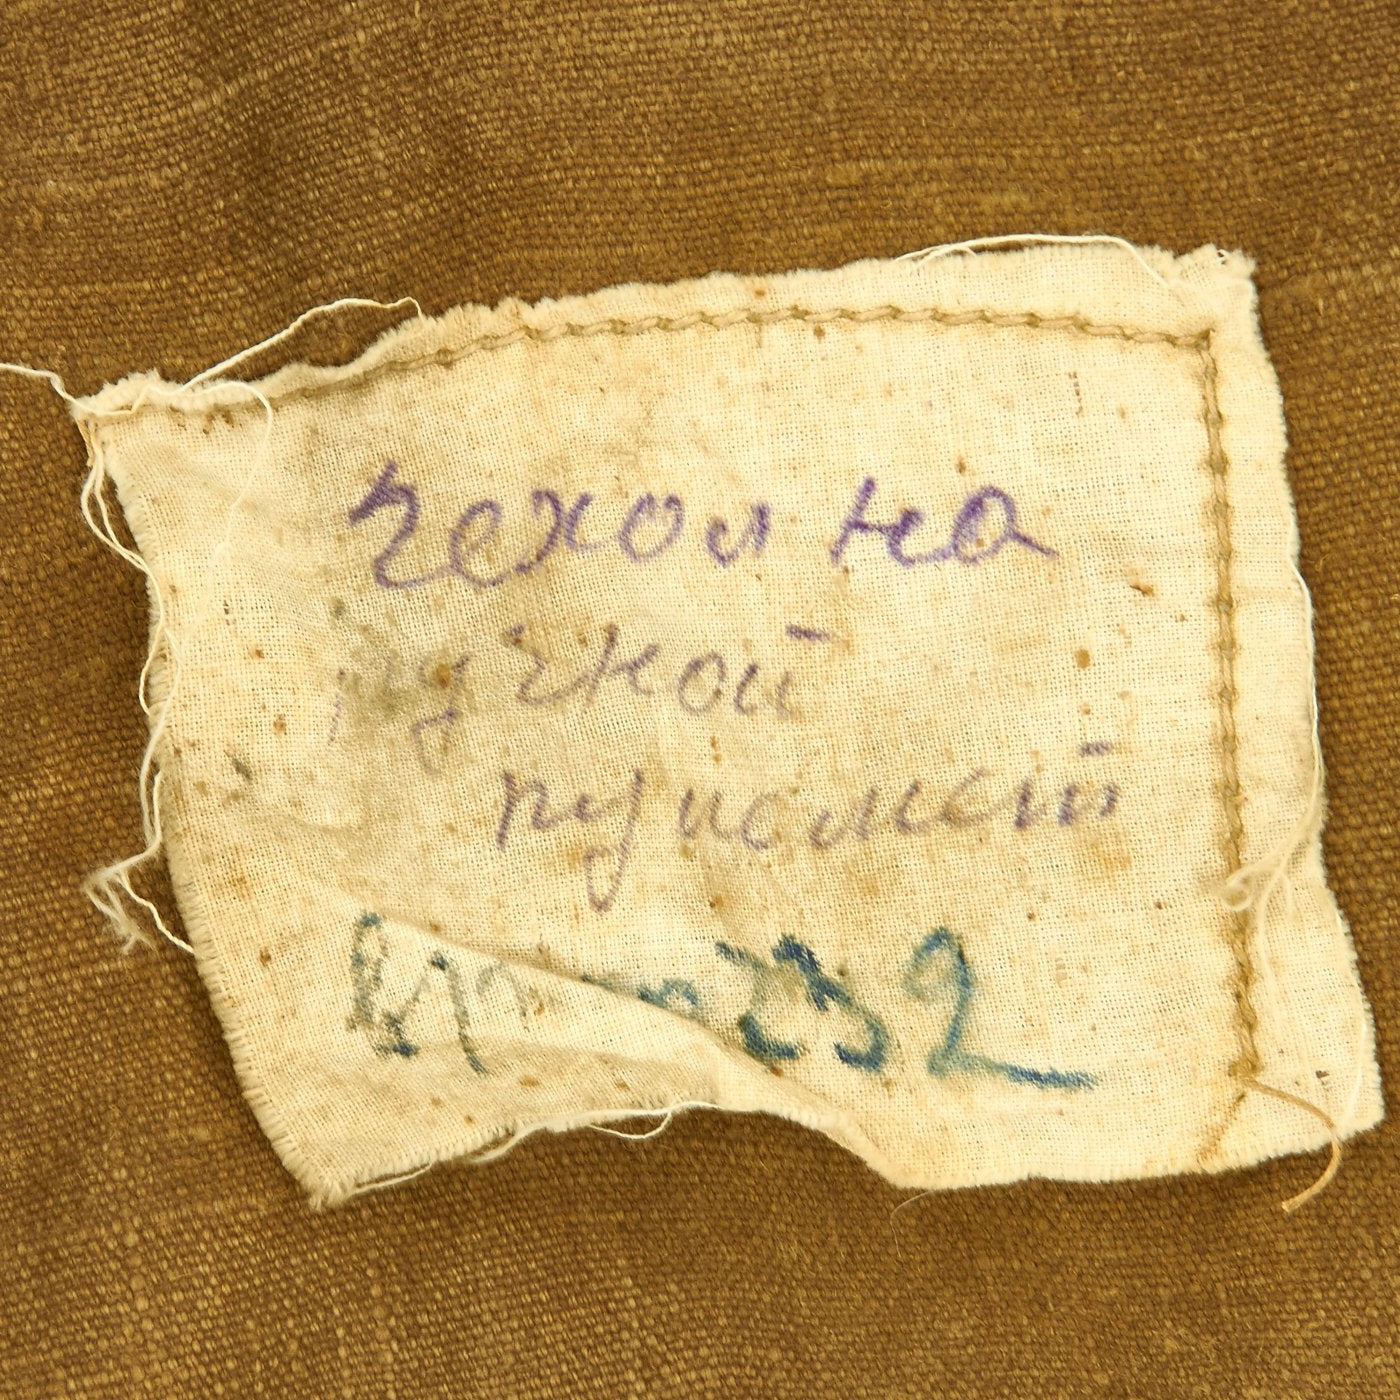 чехол на
ручной
пулемет